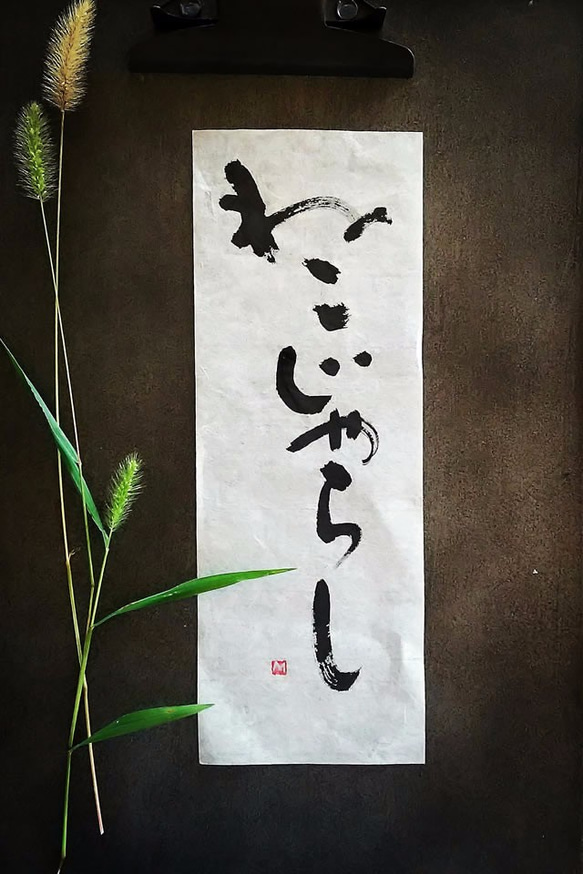 ねこじゃらし